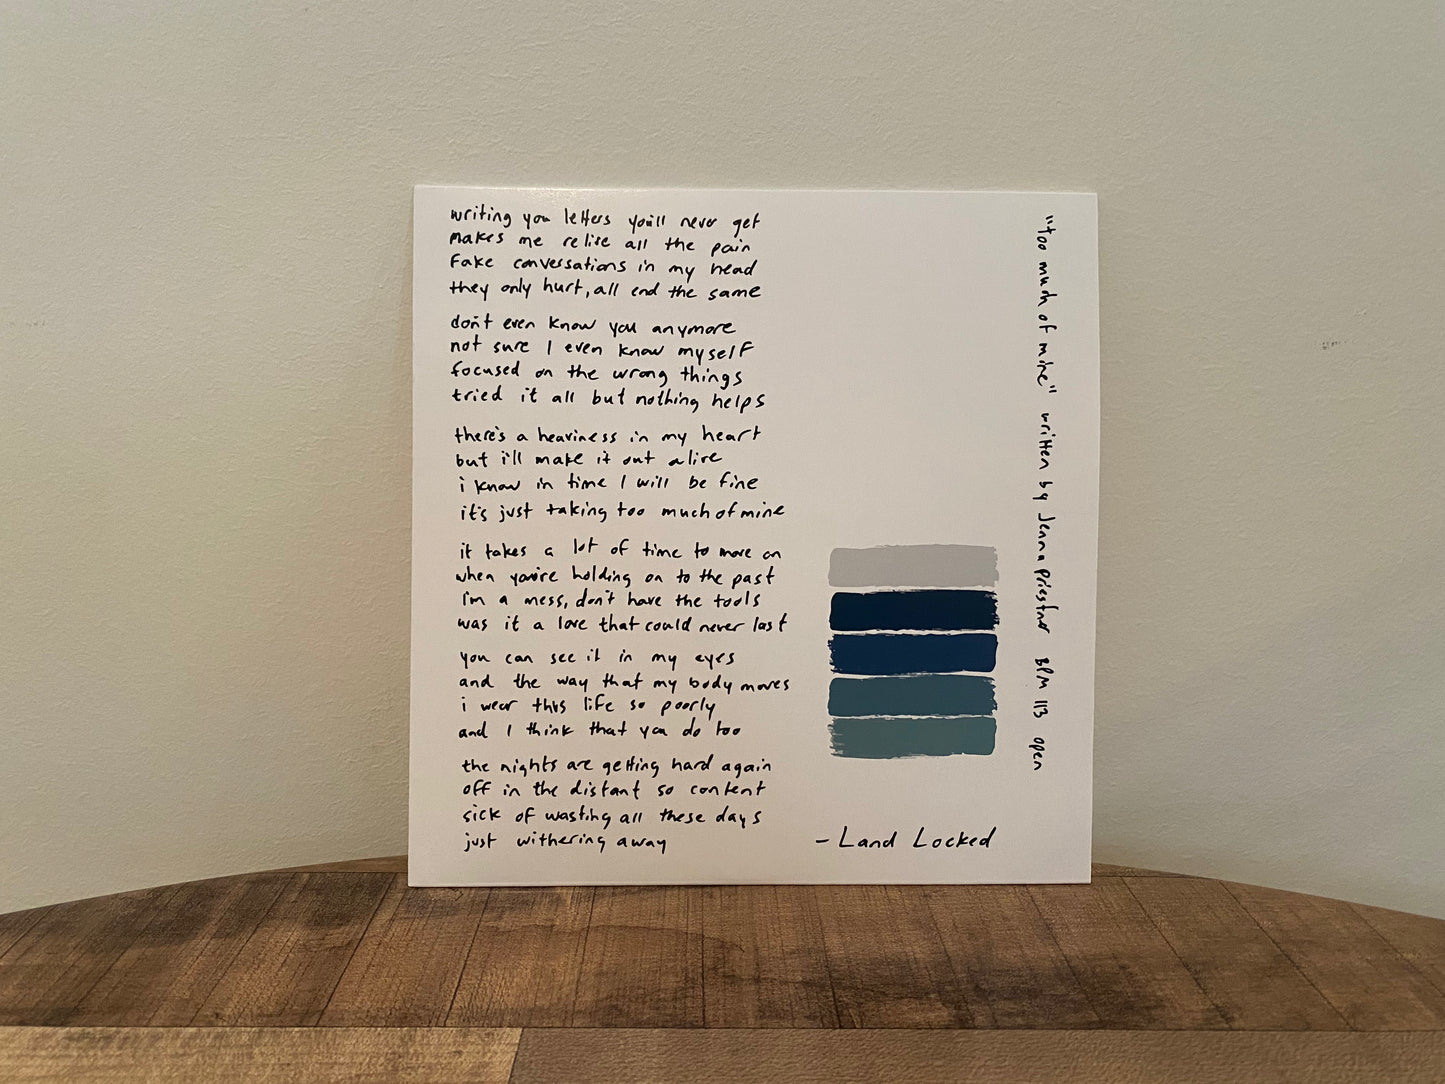 writing you letters you'll never get
makes me relive all the pain
Fake conversations in my head
they only hurt, all end the same
don't even know you anymore
not sure I even know myself
focused on the wrong things
tried it all but nothing helps
there's a heaviness in my heart
but i'll make it out alive
i know in time I will be fine
it's just taking too much of mine
it takes a lot of time to move on
when you're holding on to the past
I'm a mess, don't have the tools
was it a love that could never last
you can see it in my eyes
and the way that my body moves
i wear this life so poorly
and I think that you do too
the nights are getting hard again
off in the distant so content
sick of wasting all these days
just withering away
– Land Locked
"too much of mine" written by Jenna Priestner BPM 113 open